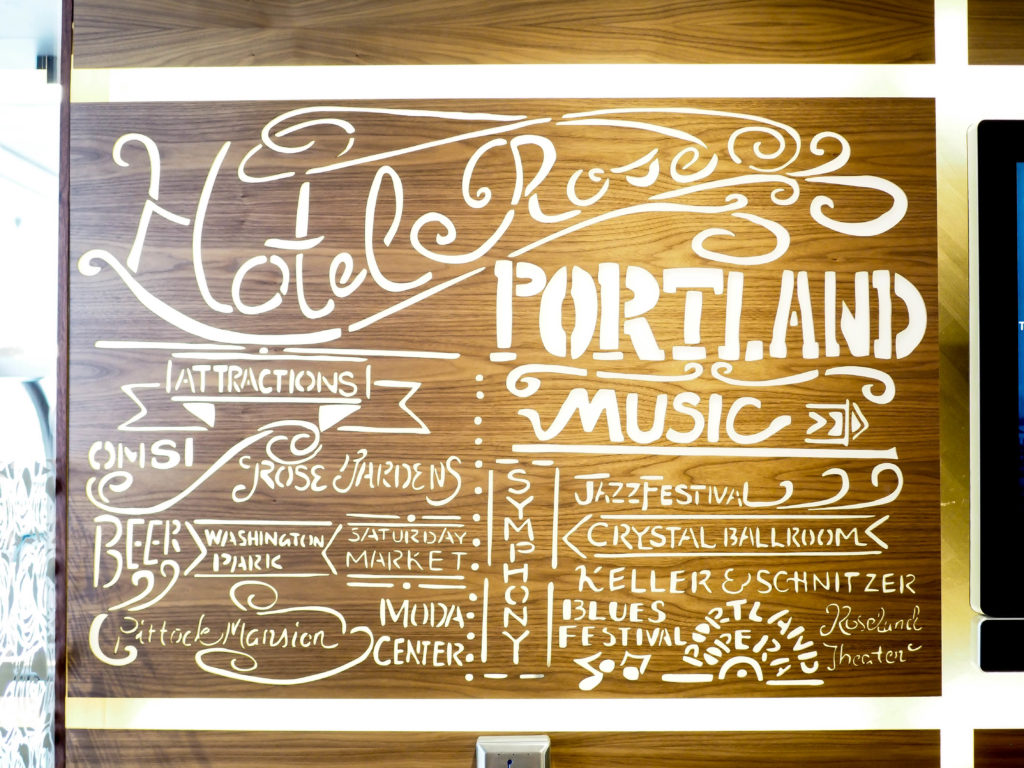 Hotel Rose
PORTLAND
MUSIC
ATTRACTIONS
OMSI
ROSE GARDENS
BEER
WASHINGTON
PARK
SATURDAY
MARKET
Pittock Mansion
MODA
CENTER
SYMPHONY
JAZZ FESTIVAL
CRYSTAL BALLROOM
KELLER & SCHNITZER
BLUES
FESTIVAL
PORTLAND
OPERA
Roseland
Theater